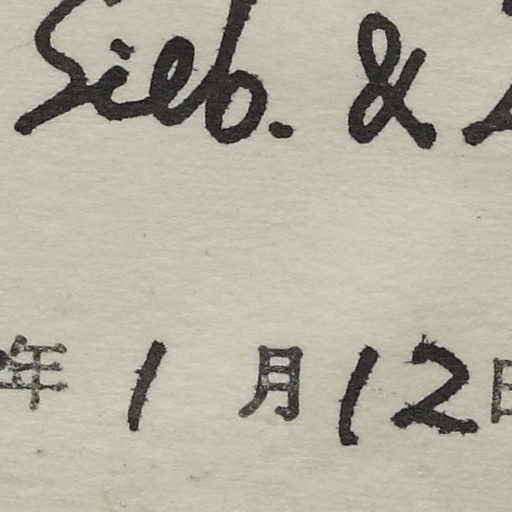 Sieb. &
年 1 月 12 日